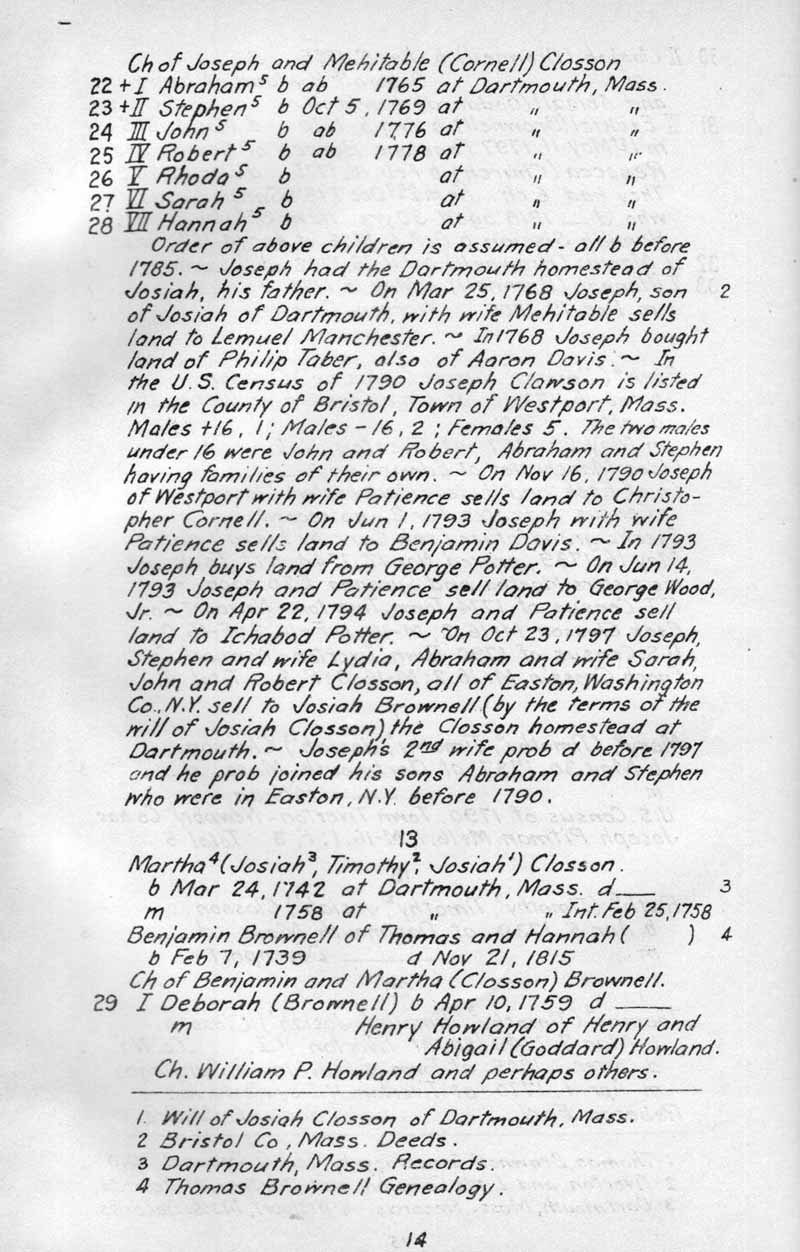 Ch of Joseph and Mehitable (Cornell) Closson
22 + I Abraham⁵ b ab 1765 at Dartmouth, Mass.
23 + II Stephen⁵ b Oct 5, 1769 at " "
24 III John⁵ b ab 1776 at " "
25 IV Robert⁵ b ab 1778 at " "
26 V Rhoda⁵ b at " "
27 VI Sarah⁵ b at " "
28 VII Hannah⁵ b at " "
Order of above children is assumed - all b before
1785. ~ Joseph had the Dartmouth homestead of
Josiah, his father. ~ On Mar 25, 1768 Joseph, son 2
of Josiah of Dartmouth, with wife Mehitable sells
land to Lemuel Manchester. ~ In 1768 Joseph bought
land of Philip Taber, also of Aaron Davis. ~ In
the U.S. Census of 1790 Joseph Clawson is listed
in the County of Bristol, Town of Westport, Mass.
Males +16, 1; Males -16, 2; Females 5. The two males
under 16 were John and Robert, Abraham and Stephen
having families of their own. ~ On Nov 16, 1790 Joseph
of Westport with wife Patience sells land to Christo-
pher Cornell. ~ On Jun 1, 1793 Joseph with wife
Patience sells land to Benjamin Davis. ~ In 1793
Joseph buys land from George Potter. ~ On Jun 14,
1793 Joseph and Patience sell land to George Wood,
Jr. ~ On Apr 22, 1794 Joseph and Patience sell
land to Ichabod Potter. ~ On Oct 23, 1797 Joseph,
Stephen and wife Lydia, Abraham and wife Sarah,
John and Robert Closson, all of Easton, Washington
Co., N.Y. sell to Josiah Brownell (by the terms of the
will of Josiah Closson) the Closson homestead at
Dartmouth. ~ Joseph's 2nd wife prob d before 1797
and he prob joined his sons Abraham and Stephen
who were in Easton, N.Y. before 1790.
13
Martha⁴ (Josiah³, Timothy², Josiah¹) Closson.
b Mar 24, 1742 at Dartmouth, Mass. d___ 3
m 1758 at " " Int. Feb 25, 1758
Benjamin Brownell of Thomas and Hannah ( ) 4
b Feb 7, 1739 d Nov 21, 1815
Ch of Benjamin and Martha (Closson) Brownell.
29 I Deborah (Brownell) b Apr 10, 1759 d ___
m Henry Howland of Henry and
Abigail (Goddard) Howland.
Ch. William P. Howland and perhaps others.
1. Will of Josiah Closson of Dartmouth, Mass.
2 Bristol Co., Mass. Deeds.
3 Dartmouth, Mass. Records.
4 Thomas Brownell Genealogy.
14